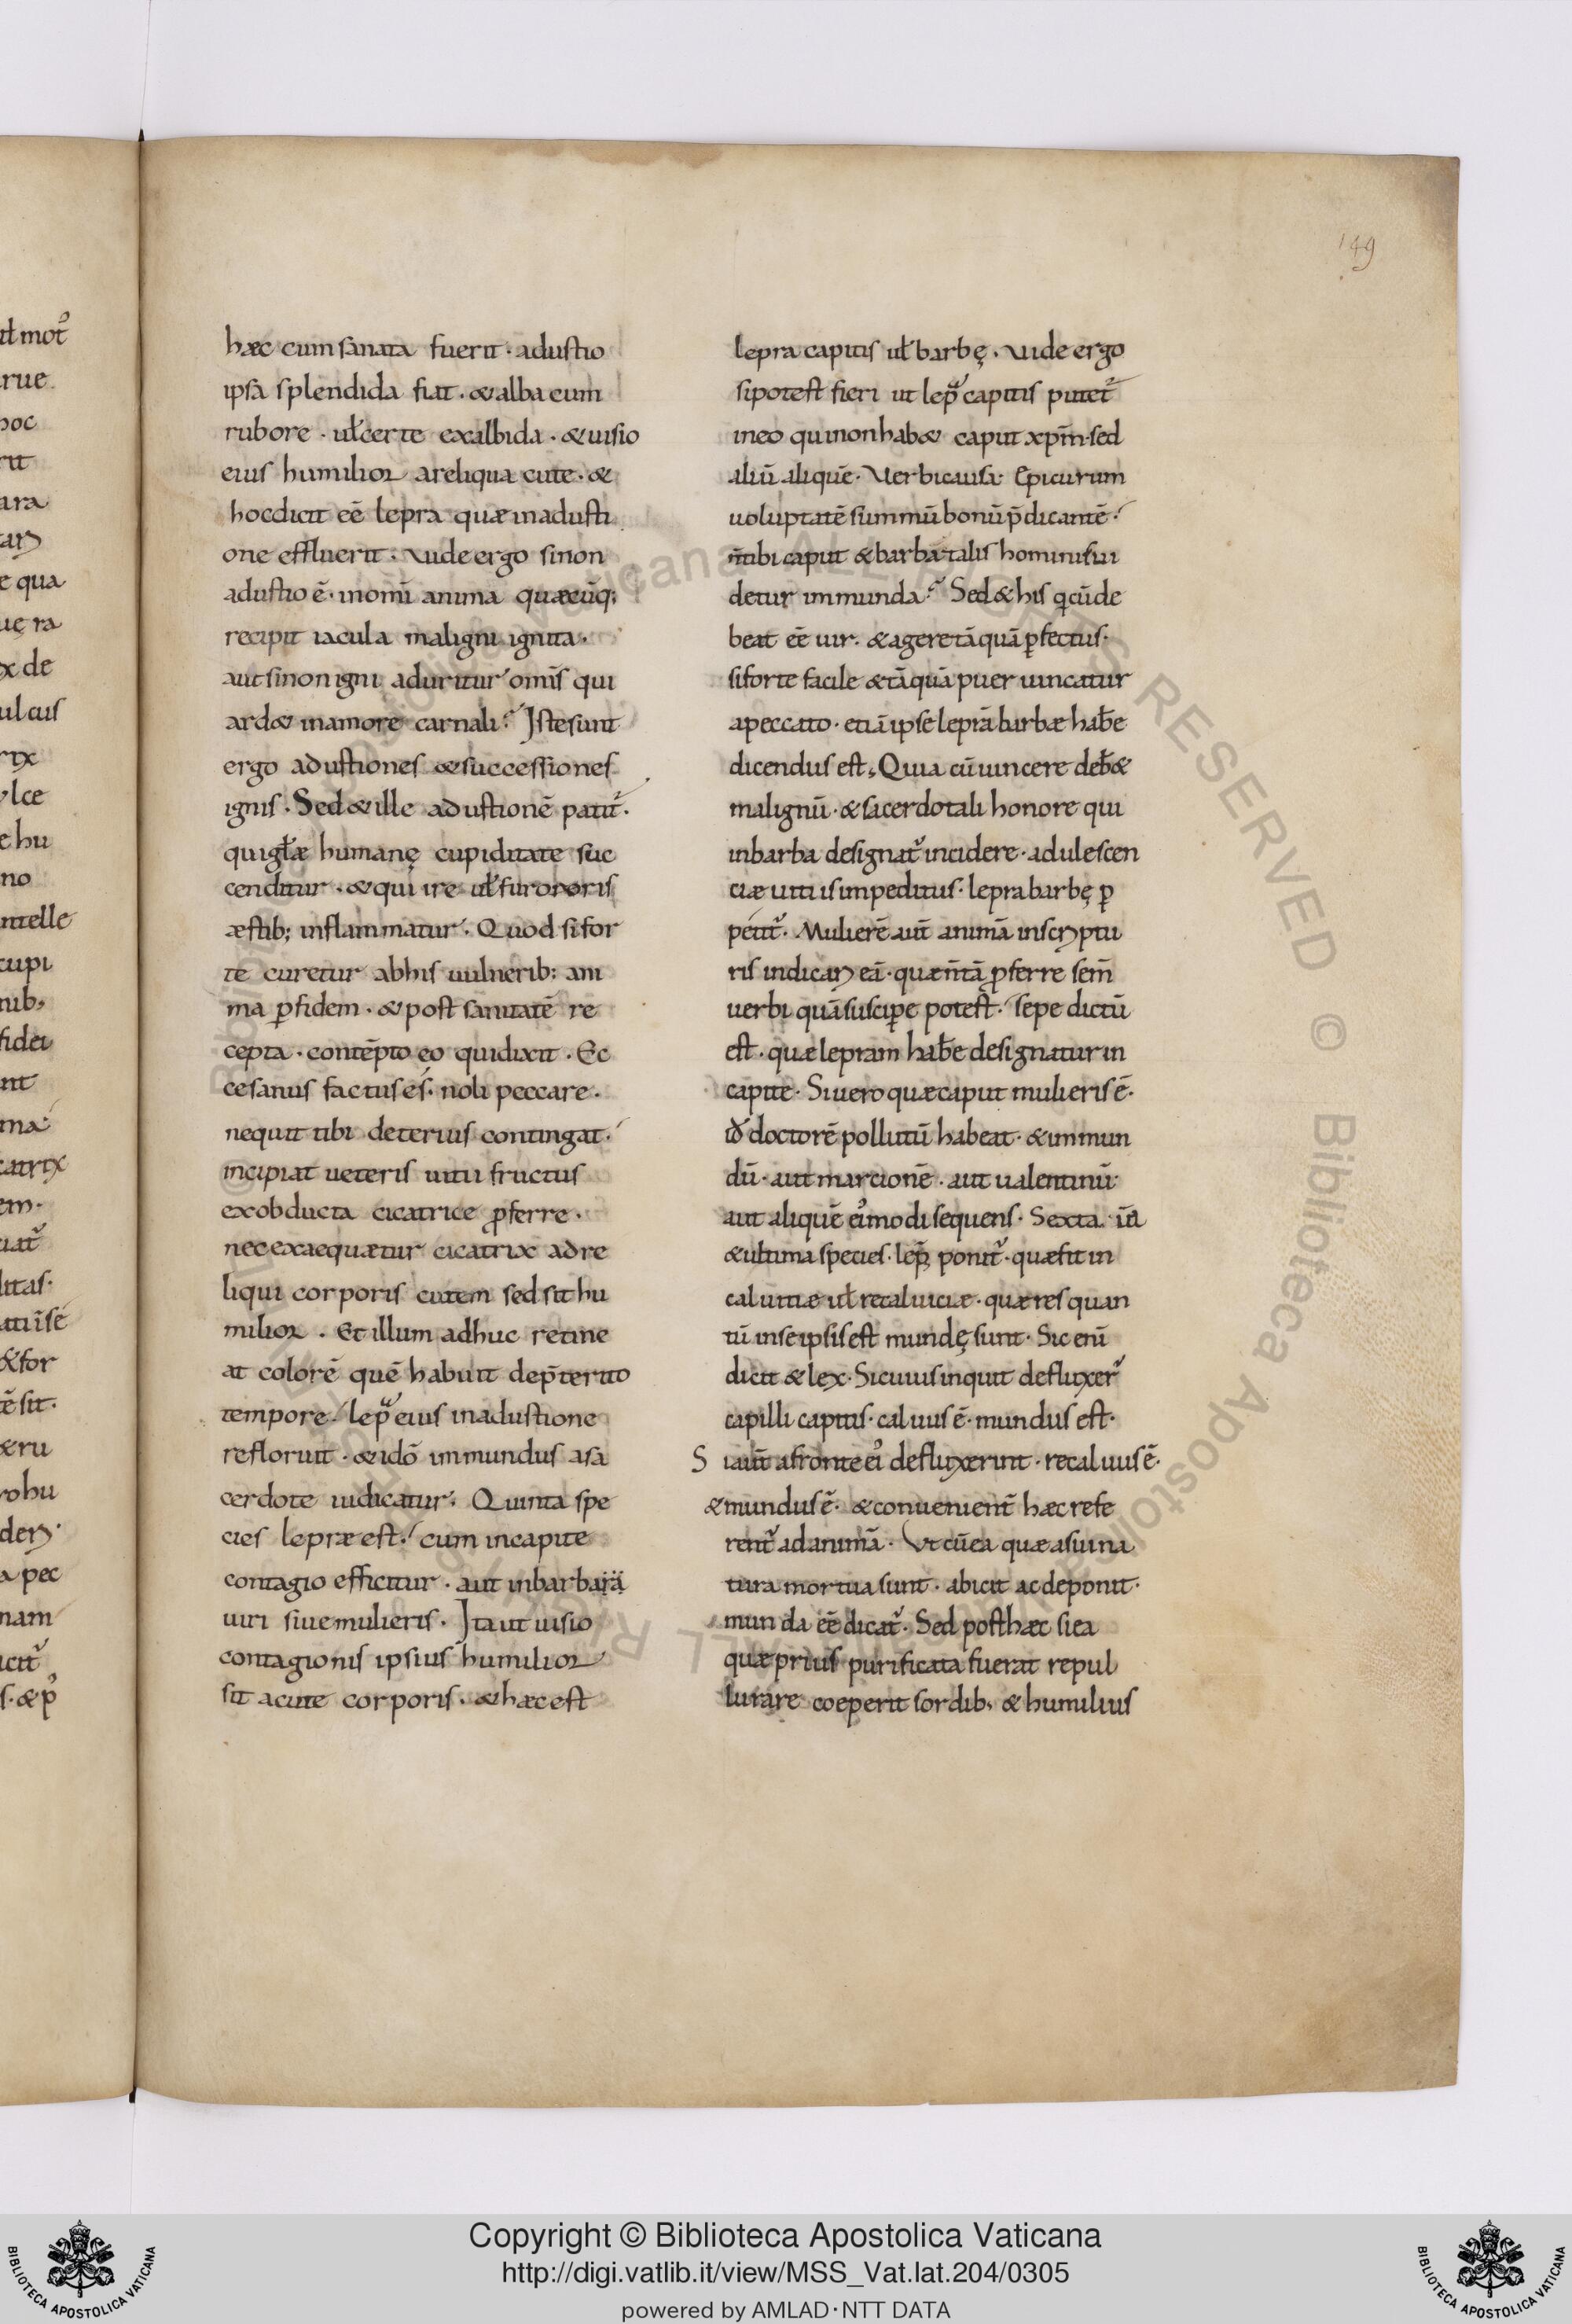 149
hæc cum sanata fuerit · adustio
ipsa splendida fiat · & alba cum
rubore · ul̄ certe exalbida · & uisio
eius humilior areliqua cute · &
hocdicit eē lepra quæ inadusti
one effluerit · Vide ergo sinon
adustio ē · inomī anima quæcūq;
recipit iacula maligni ignita ·
aut sinon igni aduritur omīs qui
ard& inamore carnali? Iste sunt
ergo adustiones & successiones
ignis · Sed & ille adustionē patit᷑ ·
qui gl̄æ humanę cupiditate suc
cenditur · & qui ire ul̄ furororis
æstib; inflammatur · Quod si for
te curetur abhis uulnerib; ani
ma ꝑ fidem · & post sanitatē re
cepta · contēpto eo qui dixit · Ec
ce sanus factus es · noli peccare ·
nequit tibi deterius contingat ·
incipiat ueteris uitii fructus
exobducta cicatrice ꝓferre ·
nec exaequætur cicatrix ad re
liqui corporis cutem sed sit hu
milior · Et illum adhuc retine
at colorē quē habuit dep̄terito
tempore · lepᷓ eius inadustione
refloruit · & idō immundus asa
cerdote iudicatur · Quinta spe
cies lepræ est · cum incapite
contagio efficitur · aut inbarbaiä
uiri siue mulieris · Ita ut uisio
contagionis ipsius humilior
sit acute corporis · & hæc est
lepra capitis ul̄ barbę · Vide ergo
si potest fieri ut lepᷓ capitis putet᷑
ineo qui non hab& caput xp̄m · sed
aliū aliquē · Verbi causa · Epicurum
uoluptatē summū bonū p̄dicantē ·
n̄ tibi caput & barba talis hominis ui
detur immunda? Sed & his qͥ cū de
beat eē uir · & agere tāquā ꝑfectus ·
si forte facile & tāquā puer uincatur
apeccato · etiā ipse leprā barbæ hab̄e
dicendus est · Quia cū uincere deb̄&
malignū · & sacerdotali honore qui
inbarba designat᷑ incidere · adulescen
ciæ uitiis impeditus · lepra barbę ꝑ
petit᷑ · Mulierē aut̄ animā inscriptu
ris indicari eā · quæ n̄ tā ꝓferre sem̄
uerbi quā suscipe potest · sepe dictū
est · quæ lepram hab̄e designatur in
capite · Si uero quæ caput mulieris ē ·
id̄ doctorē pollutū habeat · & immun
dū · aut marcionē · aut ualentinū
aut aliquē ei᾽modi sequens · Sexta · iā
& ultima species · lep̄ ponit᷑ · quæ fit in
caluitiæ ul̄ recaluiciæ · quæ res quan
tū inse ipsis est mundę sunt · Sic enī
dicit & lex · Si cuius inquit defluxer᷑
capilli capitis · caluus ē · mundus est ·
S iaut̄ afronte ei᾽ defluxerint · recaluus ē ·
& mundus ē · & conuenient̄ hæc refe
rent᷑ ad animā · Vt cū ea quæ a sui na
tura mortua sunt · abicit ac deponit ·
munda eē dicat᷑ · Sed post hæc si ea
quæ prius purificata fuerat repul
lurare coeperit sordib; & humilius
Copyright © Biblioteca Apostolica Vaticana
http://digi.vatlib.it/view/MSS_Vat.lat.204/0305
powered by AMLAD·NTT DATA
BIBLIOTECA APOSTOLICA VATICANA
BIBLIOTECA APOSTOLICA VATICANA